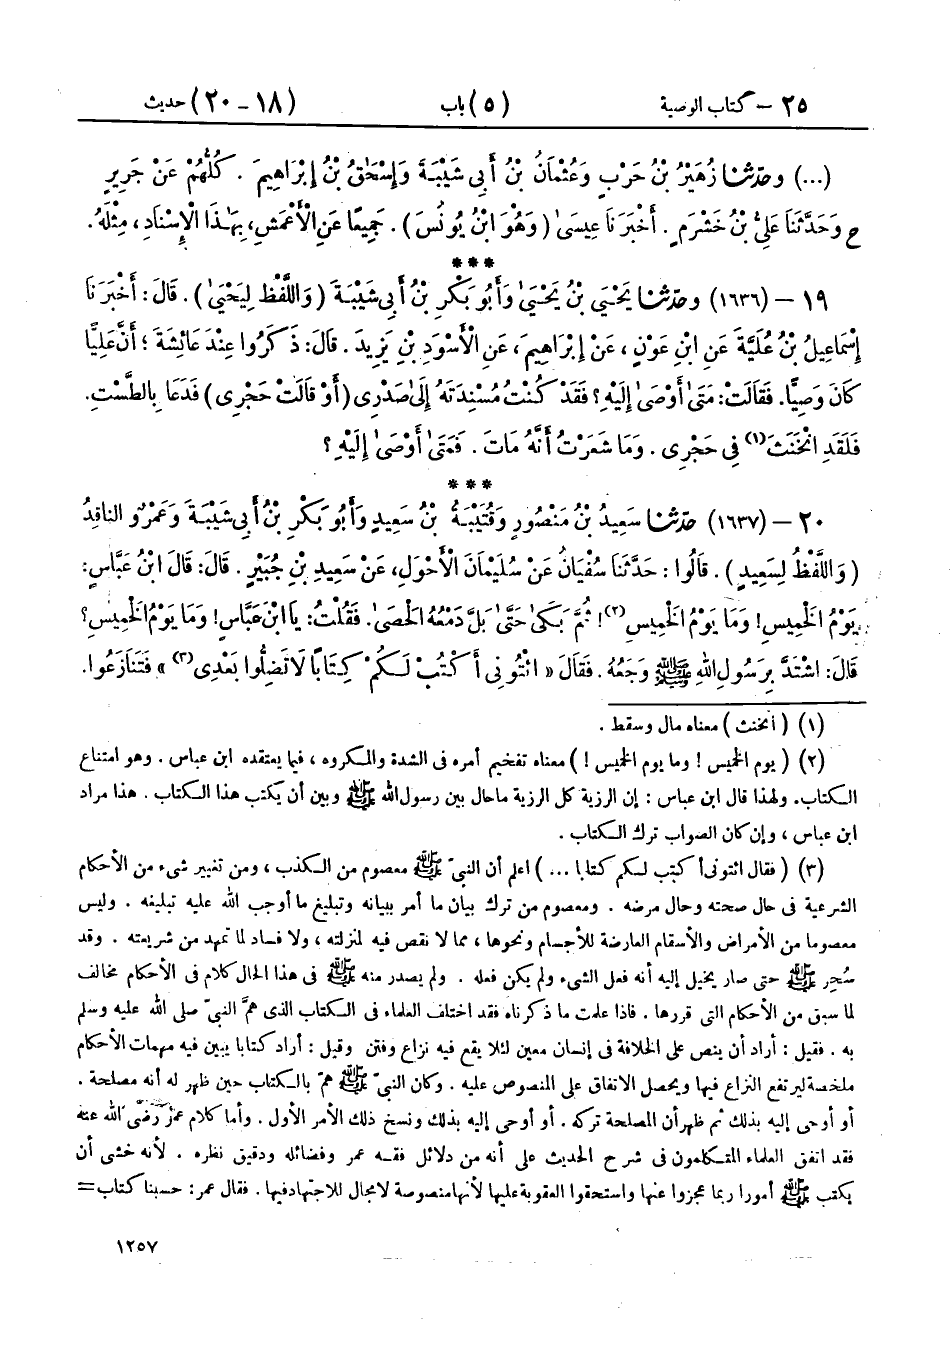 ٢٥ - كتاب الوصية (٥) باب (١٨-٢٠) حديث
(...) وحَدَّثَنَا زُهَيْرُ بْنُ حَرْبٍ وَعُثْمَانُ بْنُ أَبِي شَيْبَةَ وَإِسْحَاقُ بْنُ إِبْرَاهِيمَ . كُلُّهُمْ عَنْ جَرِيرٍ
ح وَحَدَّثَنَا عَلِيُّ بْنُ خَشْرَمٍ . أَخْبَرَنَا عِيسَىٰ ( وَهُوَ ابْنُ يُونُسَ ) . جَمِيعًا عَنِ الْأَعْمَشِ، بِهَٰذَا الْإِسْنَادِ ، مِثْلَهُ .
***
١٩ - (١٦٣٦) وحَدَّثَنَا يَحْيَىٰ بْنُ يَحْيَىٰ وَأَبُو بَكْرِ بْنُ أَبِي شَيْبَةَ ( وَاللَّفْظُ لِيَحْيَىٰ ) . قَالَ : أَخْبَرَنَا
إِسْمَاعِيلُ بْنُ عُلَيَّةَ عَنِ ابْنِ عَوْنٍ ، عَنْ إِبْرَاهِيمَ ، عَنِ الْأَسْوَدِ بْنِ يَزِيدَ . قَالَ : ذَكَرُوا عِنْدَ عَائِشَةَ ؛ أَنَّ عَلِيًّا
كَانَ وَصِيًّا. فَقَالَتْ : مَتَىٰ أَوْصَىٰ إِلَيْهِ ؟ فَقَدْ كُنْتُ مُسْنِدَتَهُ إِلَىٰ صَدْرِى ( أَوْ قَالَتْ حَجْرِى ) فَدَعَا بِالطَّسْتِ.
فَلَقَدِ انْخَنَثَ(١) فِي حَجْرِى . وَمَا شَعَرْتُ أَنَّهُ مَاتَ . فَمَتَىٰ أَوْصَىٰ إِلَيْهِ ؟
***
٢٠ - (١٦٣٧) حَدَّثَنَا سَعِيدُ بْنُ مَنْصُورٍ وَقُتَيْبَةُ بْنُ سَعِيدٍ وَأَبُو بَكْرِ بْنُ أَبِي شَيْبَةَ وَعَمْرٌو النَّاقِدُ
( وَاللَّفْظُ لِسَعِيدٍ ) . قَالُوا : حَدَّثَنَا سُفْيَانُ عَنْ سُلَيْمَانَ الْأَحْوَلِ، عَنْ سَعِيدِ بْنِ جُبَيْرٍ . قَالَ: قَالَ ابْنُ عَبَّاسٍ:
يَوْمُ الْخَمِيسِ! وَمَا يَوْمُ الْخَمِيسِ(٢)! ثُمَّ بَكَىٰ حَتَّىٰ بَلَّ دَمْعُهُ الْحَصَىٰ. فَقُلْتُ: يَا ابْنَ عَبَّاسٍ! وَمَا يَوْمُ الْخَمِيسِ؟
قَالَ: اشْتَدَّ بِرَسُولِ اللهِ ﷺ وَجَعُهُ . فَقَالَ « ائْتُونِي أَكْتُبْ لَكُمْ كِتَابًا لَا تَضِلُّوا بَعْدِى(٣) » فَتَنَازَعُوا.
(١) ( انخنث ) معناه مال وسقط .
(٢) ( يوم الخميس ! وما يوم الخميس ! ) معناه تفخيم أمره فى الشدة والمكروه ، فيما يعتقده ابن عباس . وهو امتناع
الكتاب. ولهذا قال ابن عباس : إن الرزية كل الرزية ماحال بين رسول الله ﷺ وبين أن يكتب هذا الكتاب . هذا مراد
ابن عباس ، وإن كان الصواب ترك الكتاب .
(٣) ( فقال ائتونى أكتب لكم كتابا ... ) اعلم أن النبىّ ﷺ معصوم من الكذب ، ومن تغيير شىء من الأحكام
الشرعية فى حال صحته وحال مرضه . ومعصوم من ترك بيان ما أمر ببيانه وتبليغ ما أوجب الله عليه تبليغه . وليس
معصوما من الأمراض والأسقام العارضة للأجسام ونحوها ، مما لا نقص فيه لمنزلته ، ولا فساد لما تمهد من شريعته . وقد
سُحِر ﷺ حتى صار يخيل إليه أنه فعل الشىء ولم يكن فعله . ولم يصدر منه ﷺ فى هذا الحال كلام فى الأحكام مخالف
لما سبق من الأحكام التى قررها . فاذا علمت ما ذكرناه فقد اختلف العلماء فى الكتاب الذى همَّ النبىّ صلى الله عليه وسلم
به . فقيل : أراد أن ينص على الخلافة فى إنسان معين لئلا يقع فيه نزاع وفتن وقيل : أراد كتابا يبين فيه مهمات الأحكام
ملخصة ليرتفع النزاع فيها ويحصل الاتفاق على المنصوص عليه . وكان النبىّ ﷺ همّ بالكتاب حين ظهر له أنه مصلحة .
أو أوحى إليه بذلك ثم ظهر أن المصلحة تركه . أو أوحى إليه بذلك ونسخ ذلك الأمر الأول . وأما كلام عمر رضى الله عنه
فقد اتفق العلماء المتكلمون فى شرح الحديث على أنه من دلائل فقه عمر وفضائله ودقيق نظره . لأنه خشى أن
يكتب ﷺ أمورا ربما عجزوا عنها واستحقوا العقوبة عليها لأنها منصوصة لامجال للاجتهاد فيها . فقال عمر : حسبنا كتاب =
١٢٥٧